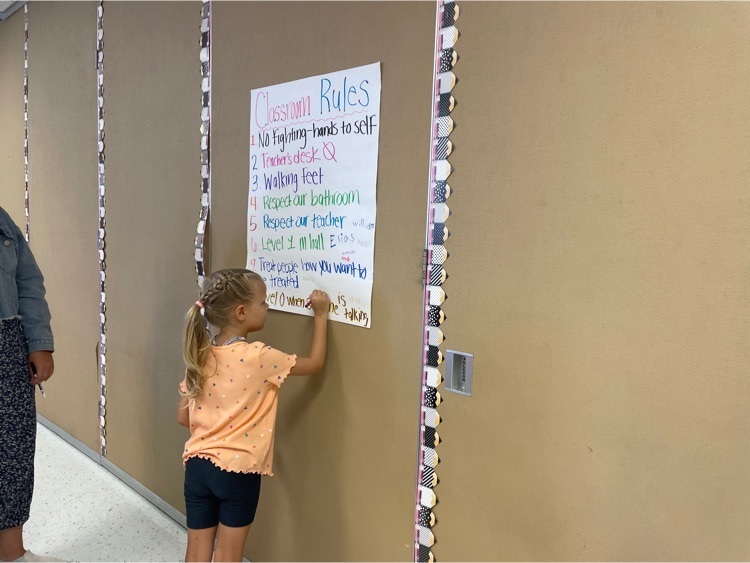 Classroom Rules
1 No fighting-hands to self
2 Teacher's desk
3 Walking feet
4 Respect our bathroom
5 Respect our teacher William
6 Level 1 in hall Elias
Treat people how you want to
treated
0 when is
talking